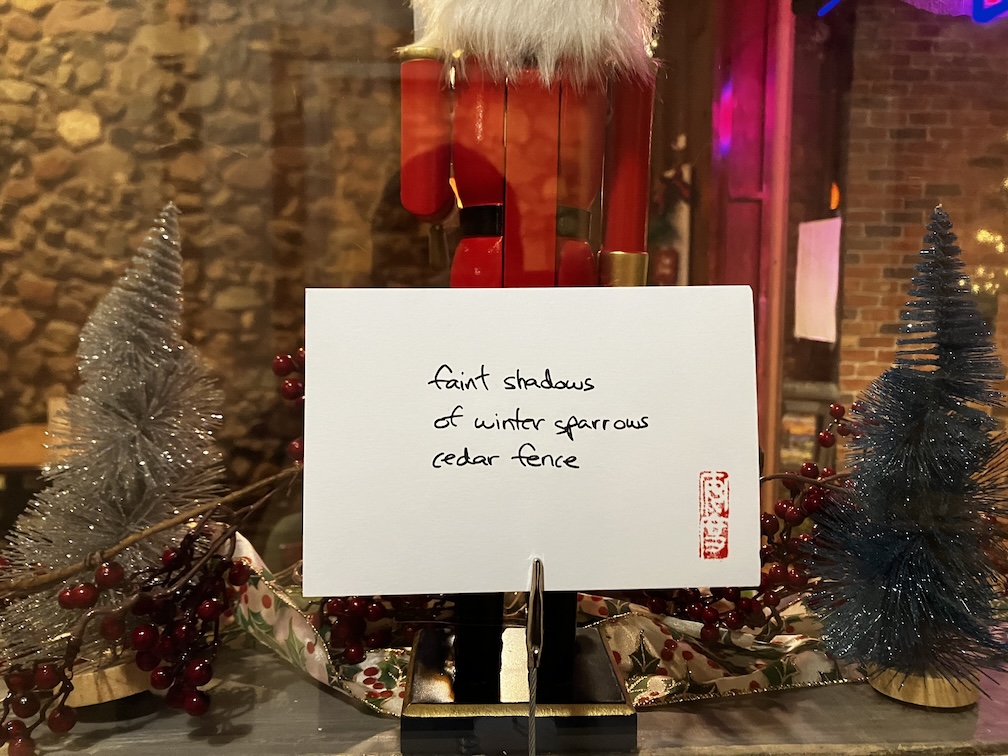 faint shadows
of winter sparrows
cedar fence